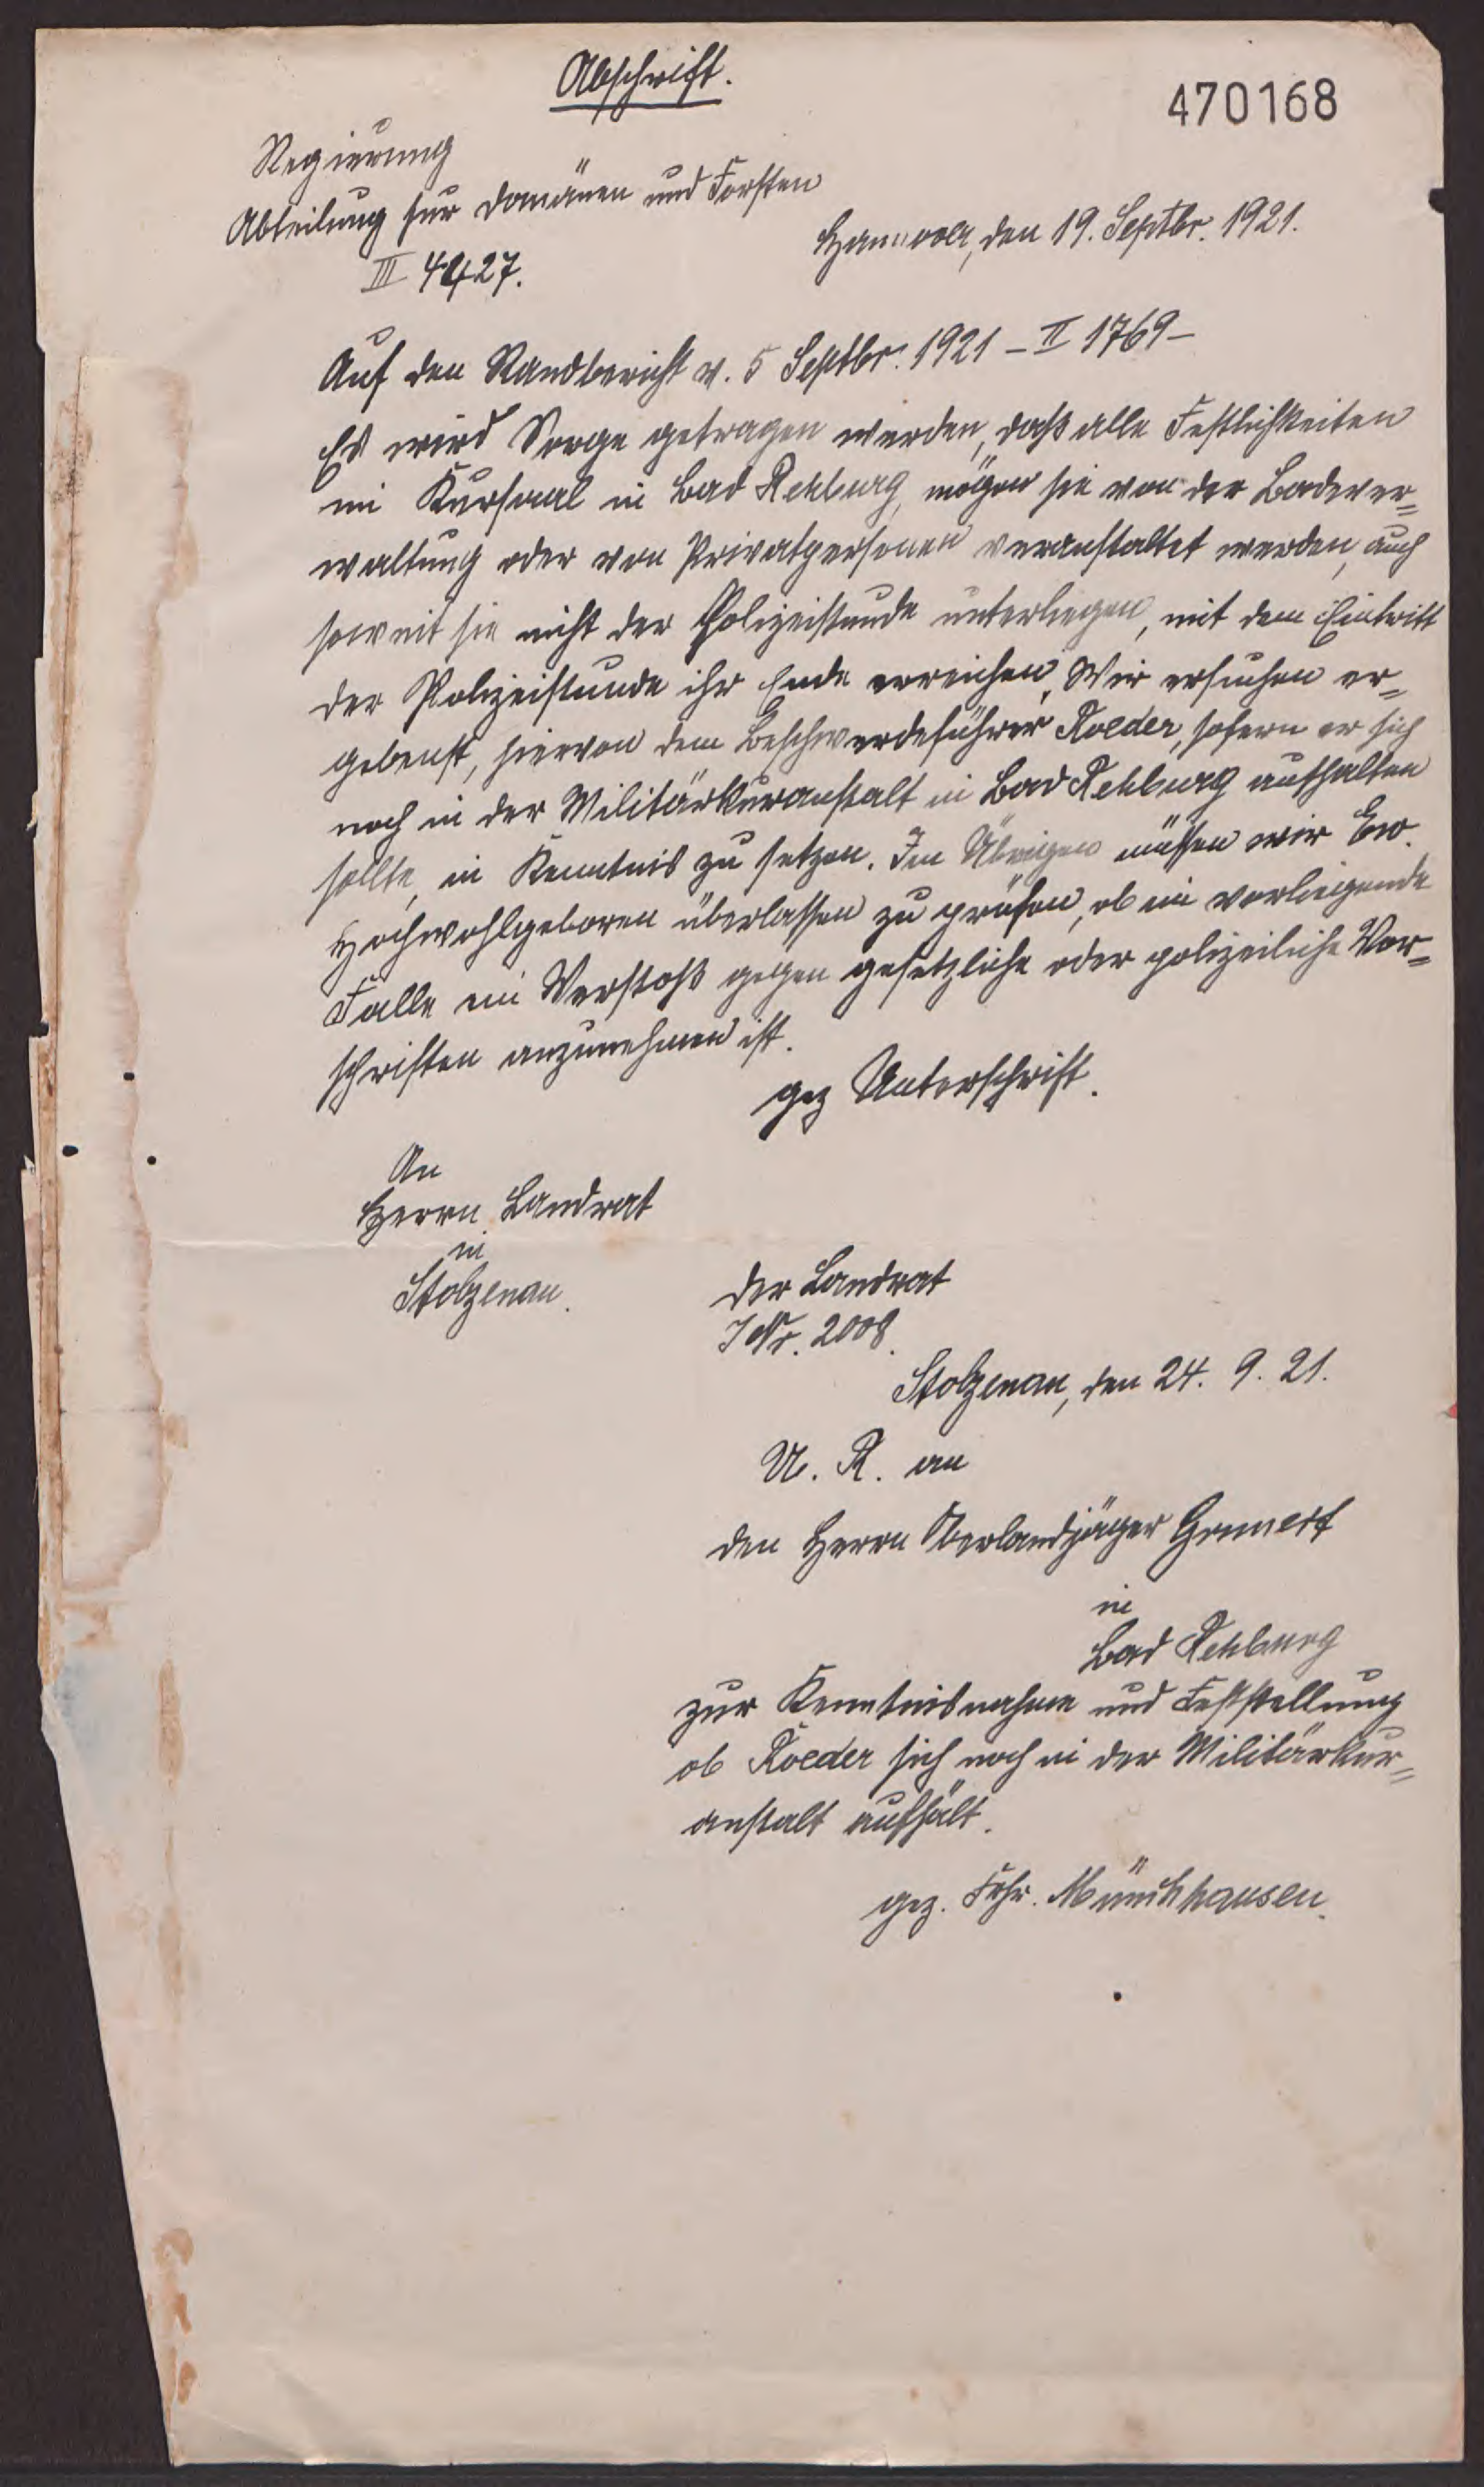 Abschrift.
470168
Regierung
Abteilung für Domänen und Forsten
Hannover, den 19. Septbr. 1921.
III 4427.
Auf den Randbericht v. 5 Septbr. 1921 – II 1769 –
Es wird Sorge getragen werden, daß alle Festlichkeiten
im Kursaal in Bad Rehburg, mögen sie von der Badever=
waltung oder von Privatpersonen veranstaltet werden, auch
soweit sie nicht der Polizeistunde unterliegen, mit dem Eintritt
der Polizeistunde ihr Ende erreichen. Wir ersuchen er=
gebenst, hiervon dem Beschwerdeführer Roeder, sofern er sich
noch in der Militärkuranstalt in Bad Rehburg aufhalten
sollte, in Kenntnis zu setzen. Im Übrigen müssen wir Ew.
Hochwohlgeboren überlassen zu prüfen, ob im vorliegende
Falle ein Verstoß gegen gesetzliche oder polizeiliche Vor=
schriften anzunehmen ist.
gez Unterschrift.
An
Herrn Landrat
in
Stolzenau.
Der Landrat
J Nr. 2008.
Stolzenau, den 24. 9. 21.
U. R. an
den Herrn Oberlandjäger Grunert
in
Bad Rehburg
zur Kenntnisnahme und Feststellung
ob Roeder sich noch in der Militärkur=
anstalt aufhält.
gez. Frhr. Münchhausen.